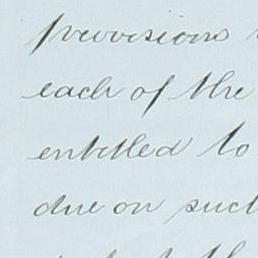 provisions
each of the
entitled to
due on such